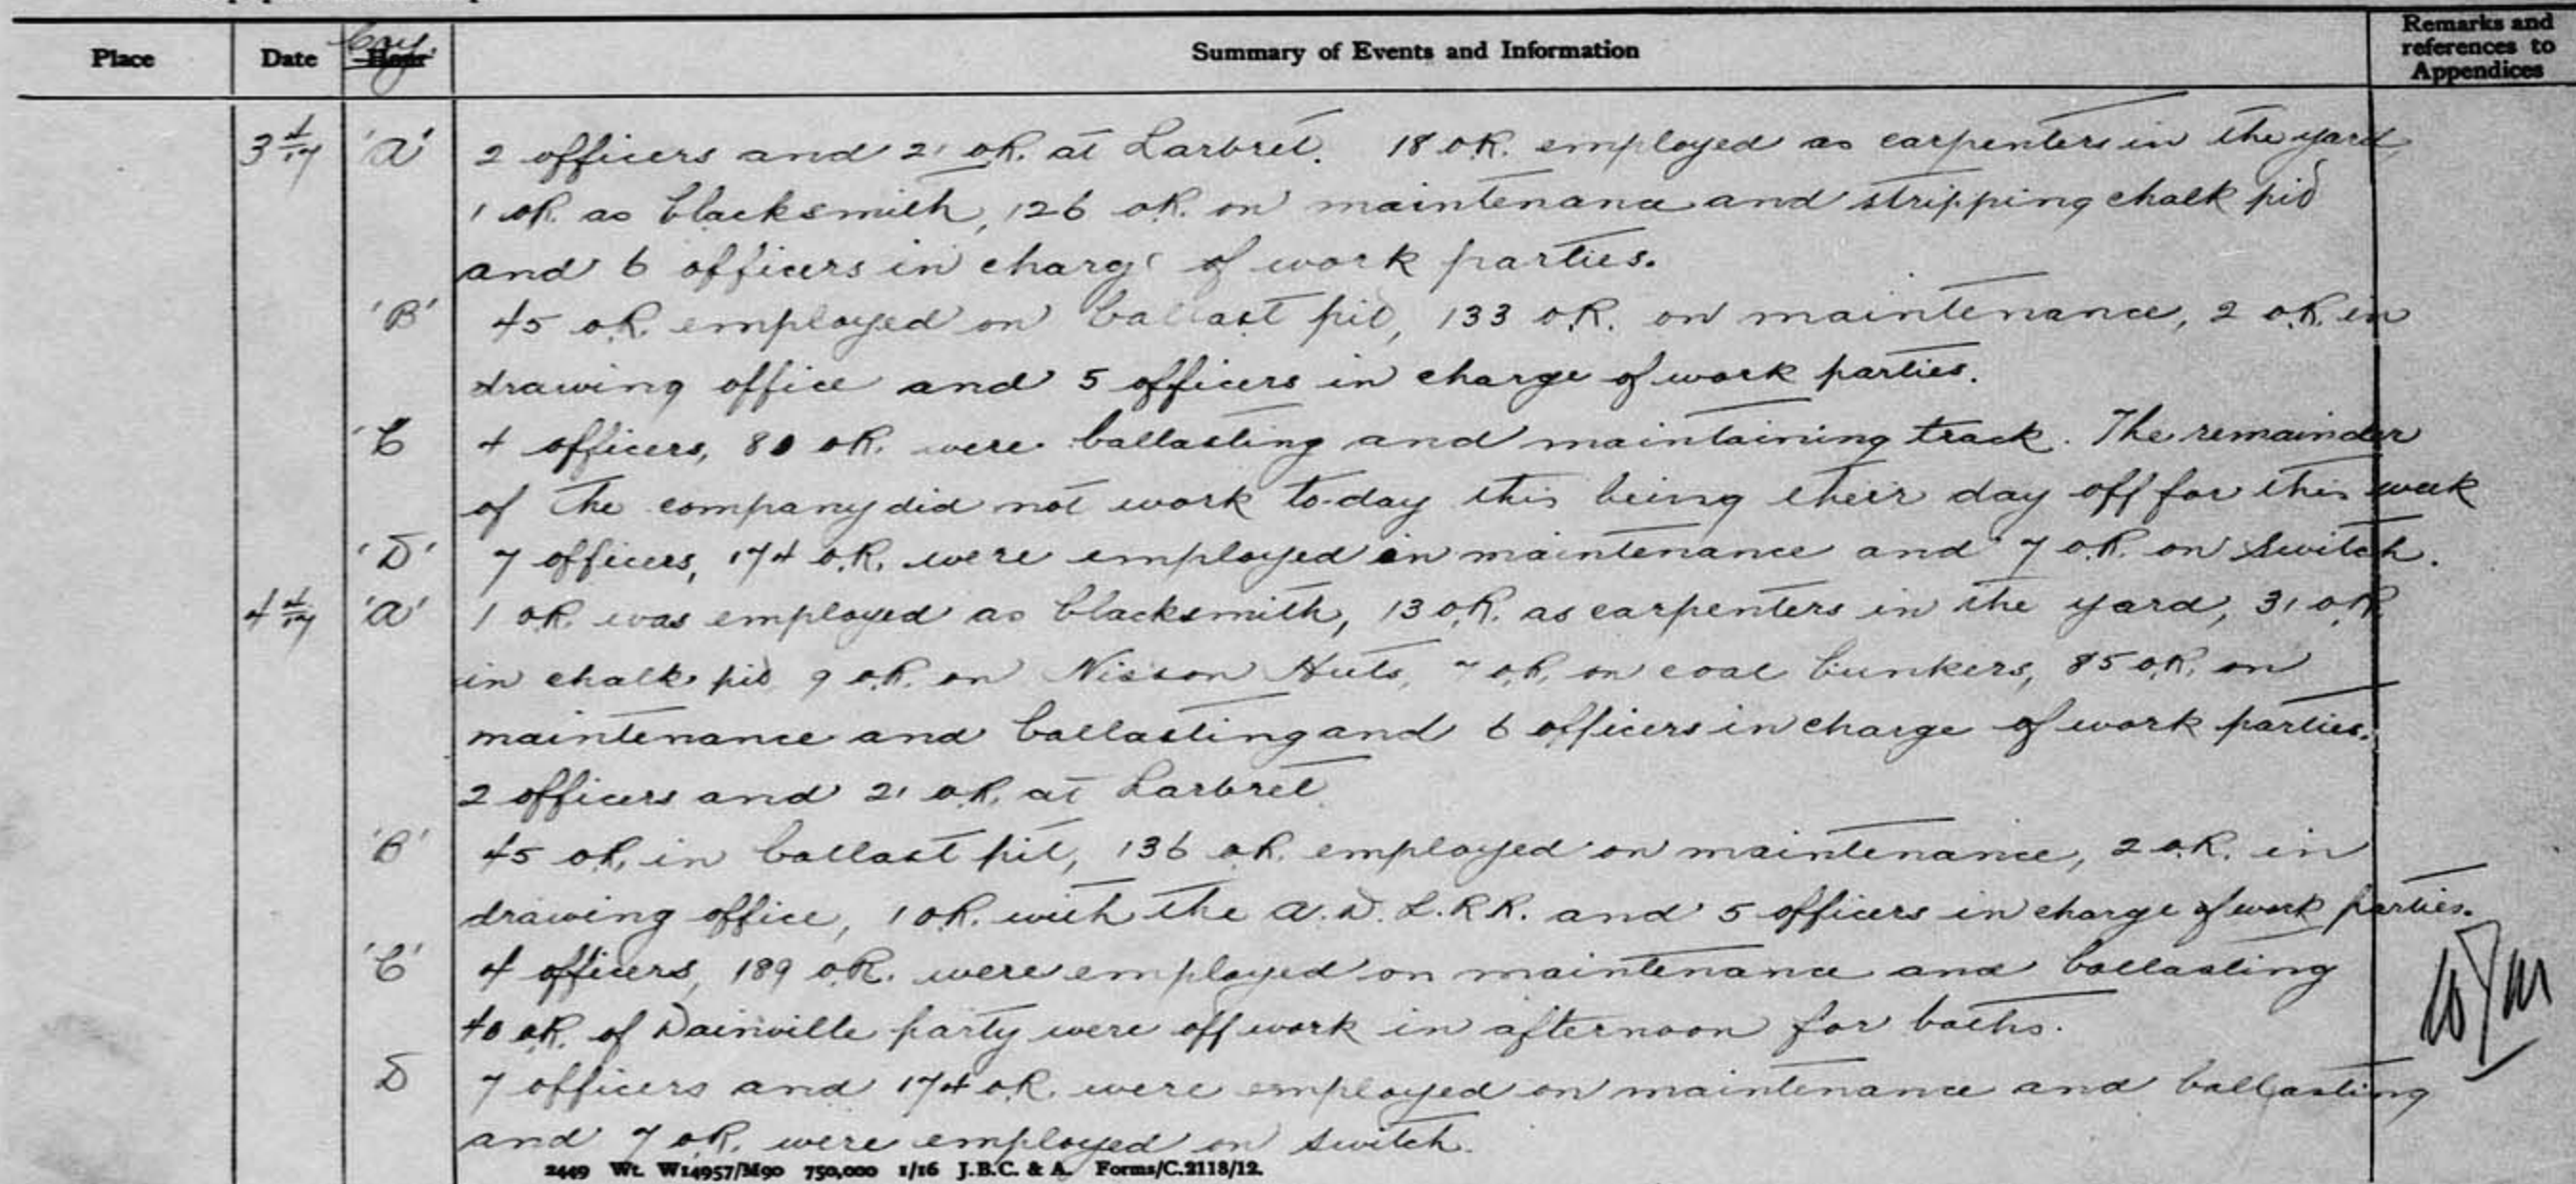 Place Date Coy. Hour Summary of Events and Information Remarks and references to Appendices
3 'A' 2 officers and 21 O.R. at Larbret. 18 O.R. employed as carpenters in the yard,
1 O.R. as blacksmith, 126 O.R. on maintenance and stripping chalk pit
and 6 officers in charge of work parties.
'B' 45 O.R. employed on ballast pit, 133 O.R. on maintenance, 2 O.R. in
drawing office and 5 officers in charge of work parties.
'C' 4 officers, 80 O.R. were ballasting and maintaining track. The remainder
of the company did not work to-day this being their day off for this week
'D' 7 officers, 174 O.R. were employed on maintenance and 7 O.R. on switch.
4 'A' 1 O.R. was employed as blacksmith, 13 O.R. as carpenters in the yard, 31 O.R.
in chalk pit 9 O.R. on Nisson Huts, 7 O.R. on coal bunkers, 85 O.R. on
maintenance and ballasting and 6 officers in charge of work parties.
2 officers and 21 O.R. at Larbret
'B' 45 O.R. in ballast pit, 136 O.R. employed on maintenance, 2 O.R. in
drawing office, 1 O.R. with the A.D.L.R.R. and 5 officers in charge of work parties.
'C' 4 officers, 189 O.R. were employed on maintenance and ballasting
40 O.R. of Dainville party were off work in afternoon for baths.
D 7 officers and 174 O.R. were employed on maintenance and ballasting
and 7 O.R. were employed on switch.
2449 Wt. W14957/M90 750,000 1/16 J.B.C. & A. Forms/C.2118/12.